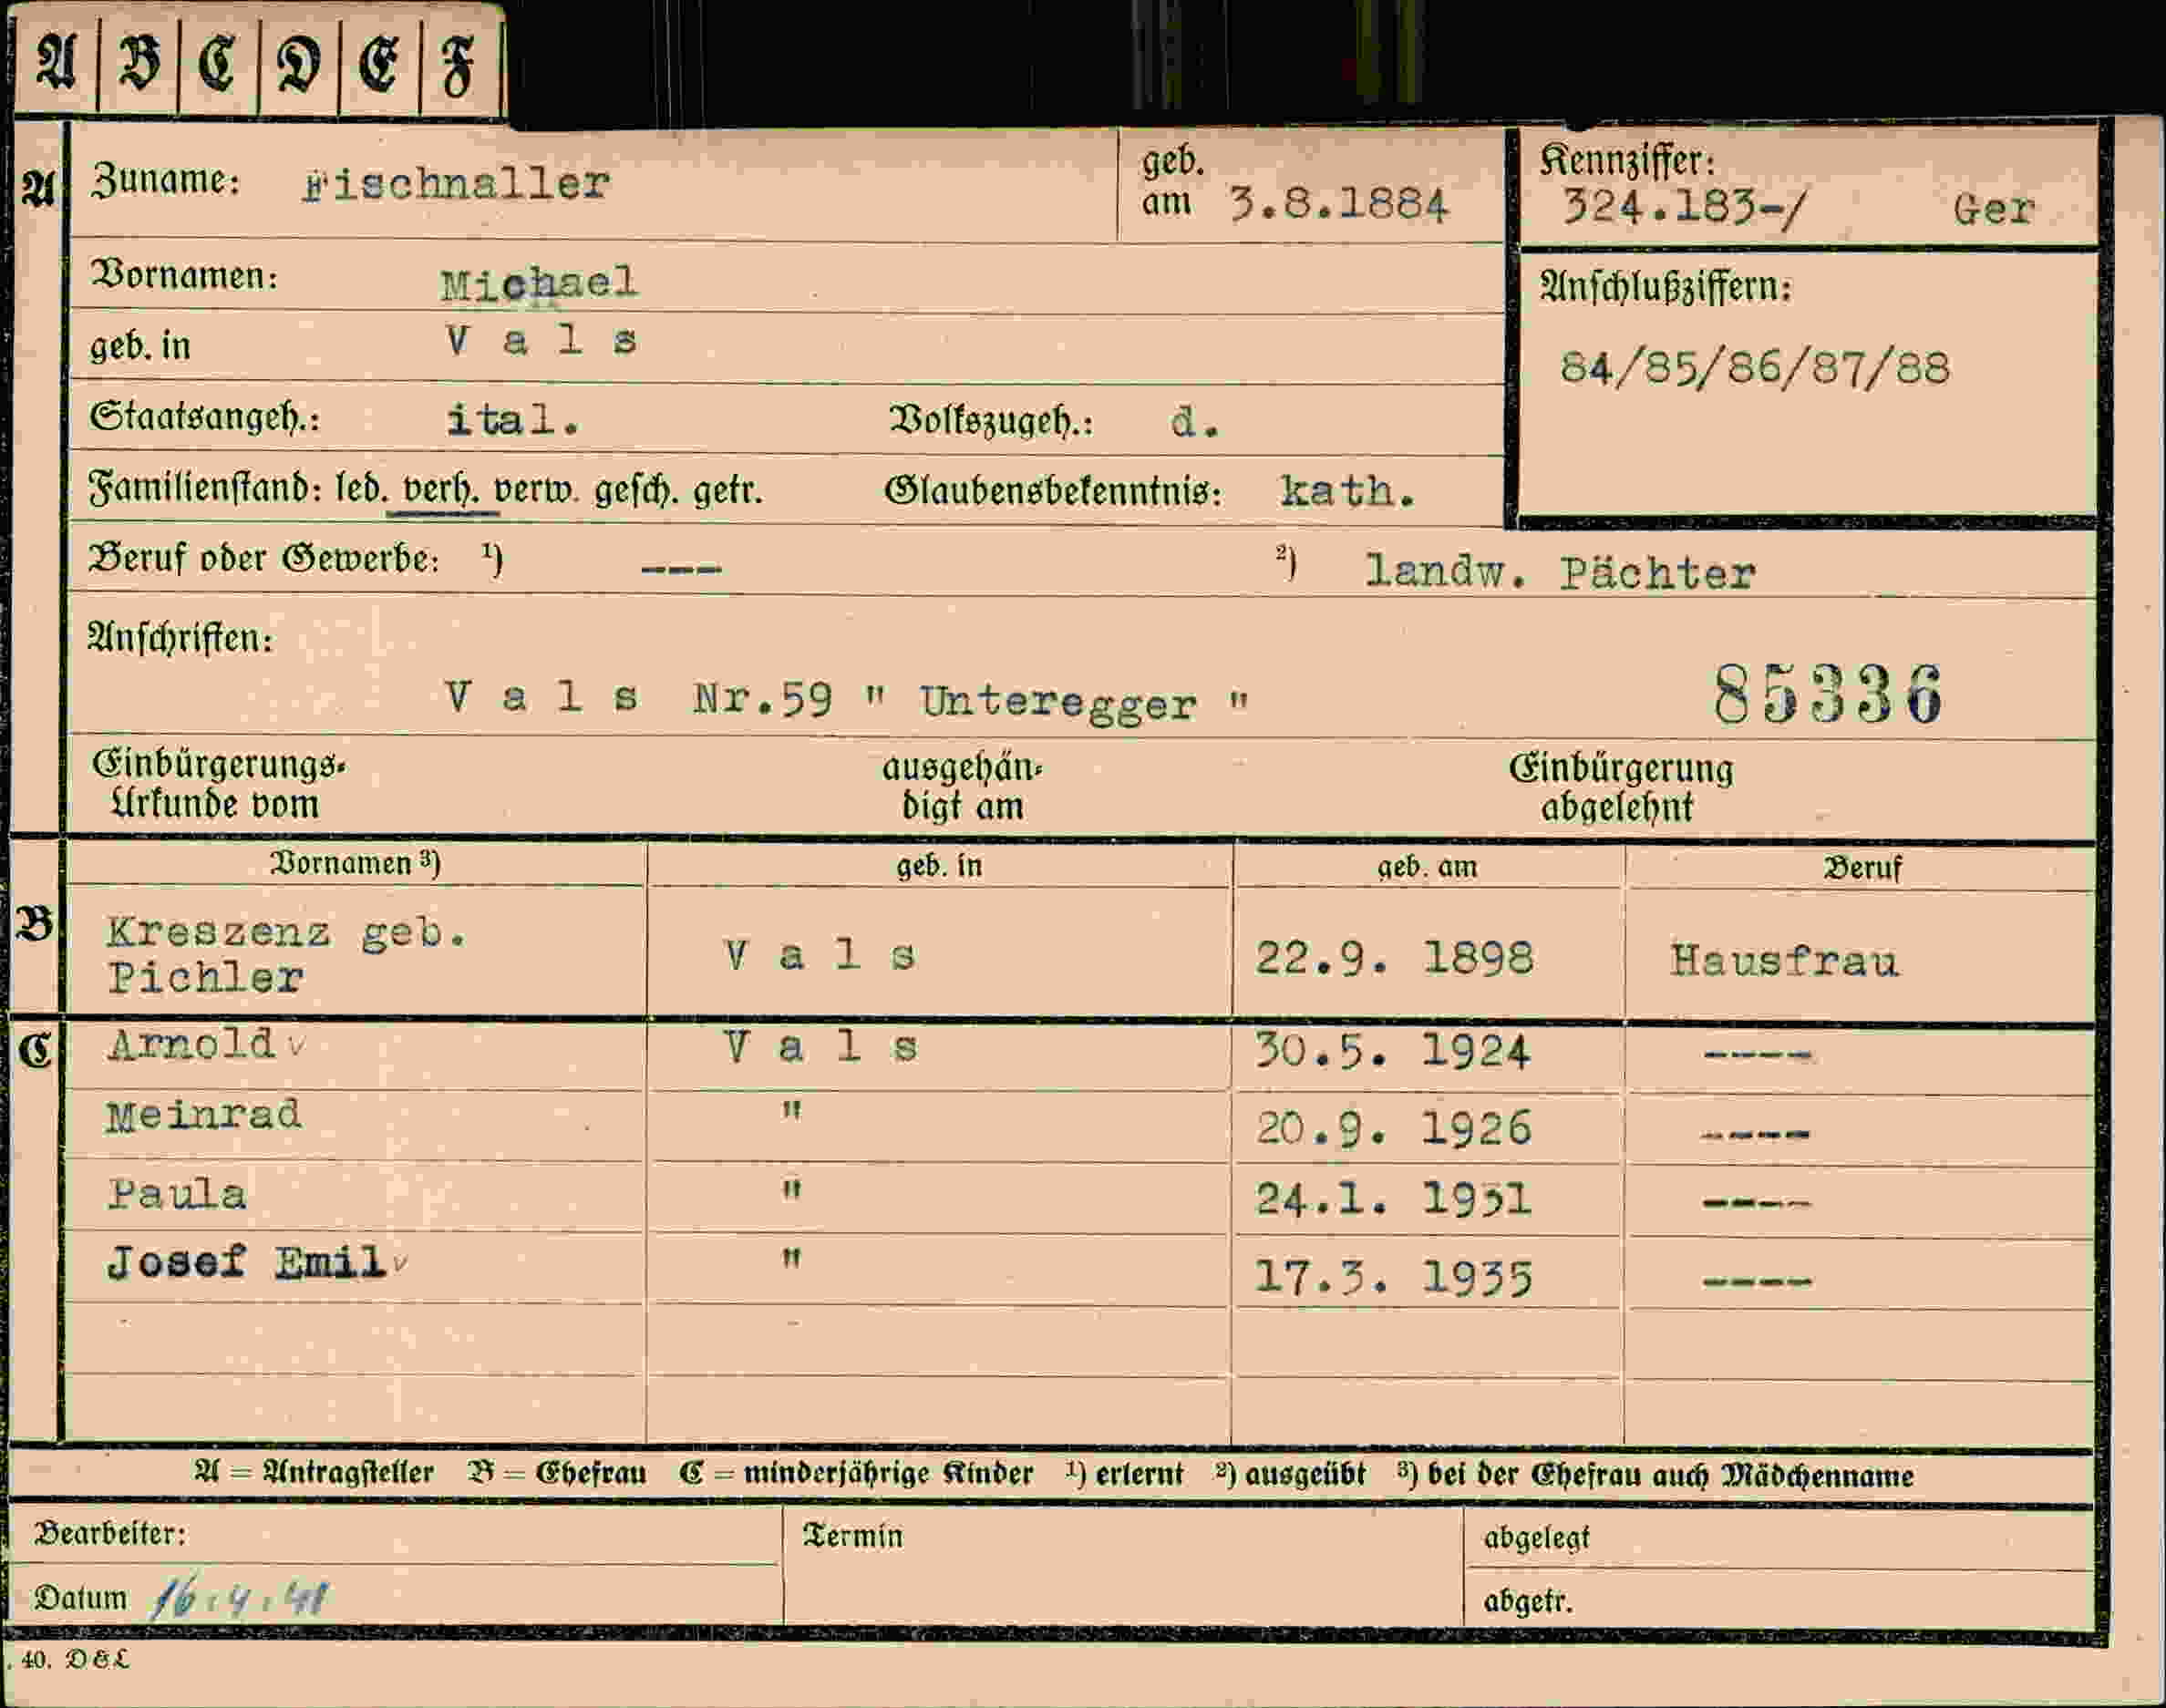 A B C D E F
A Zuname: Fischnaller geb. am 3.8.1884 Kennziffer: 324.183-/ Ger
Vornamen: Michael Anschlußziffern:
geb. in V a l s 84/85/86/87/88
Staatsangeh.: ital. Volkszugeh.: d.
Familienstand: led. verh. verw. gesch. getr. Glaubensbekenntnis: kath.
Beruf oder Gewerbe: ¹) --- ²) landw. Pächter
Anschriften:
V a l s Nr.59 " Unteregger " 85336
Einbürgerungs- ausgehän- Einbürgerung
Urkunde vom digt am abgelehnt
Vornamen ³) geb. in geb. am Beruf
B Kreszenz geb.
Pichler V a l s 22.9. 1898 Hausfrau
C Arnold v V a l s 30.5. 1924 ----
Meinrad " 20.9. 1926 ----
Paula " 24.1. 1931 ----
Josef Emil v " 17.3. 1935 ----
A = Antragsteller B = Ehefrau C = minderjährige Kinder ¹) erlernt ²) ausgeübt ³) bei der Ehefrau auch Mädchenname
Bearbeiter: Termin abgelegt
Datum 16.4.41 abgetr.
. 40. D & L